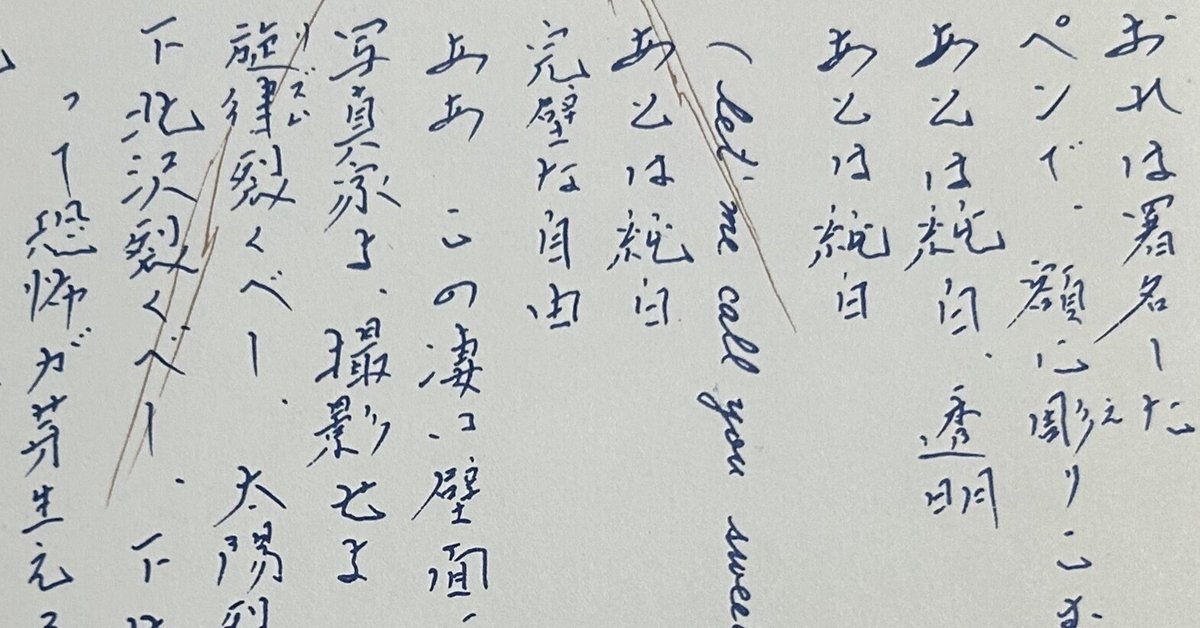 おれは署名した
ペンで、額に彫りこま
あとは純白、透明
あとは純白
(let me call you swee
あとは純白
完璧な自由
ああ この凄い壁面、
写真家よ、撮影せよ
旋律裂くべし、太陽裂
リズム
下北沢裂くべし、下北
恐怖が芽生える